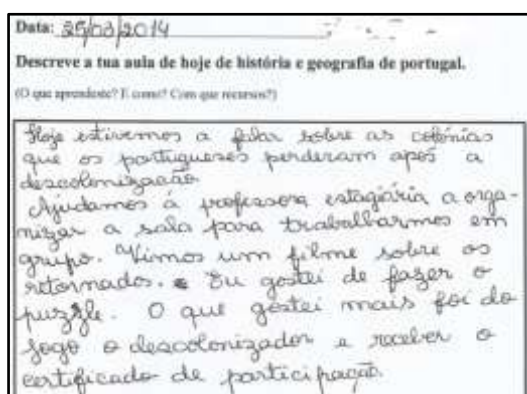 Data: 25/03/2014
Descreve a tua aula de hoje de história e geografia de portugal.
(O que aprendeste? E como? Com que recursos?)
Hoje estivemos a falar sobre as colónias
que os portugueses perderam após a
descolonização
Ajudamos á professora estagiária a orga-
nizar a sala para trabalharmos em
grupo. Vimos um filme sobre os
retornados. Eu gostei de fazer o
puzzle. O que gostei mais foi do
jogo o descolonizador e receber o
certificado de participação